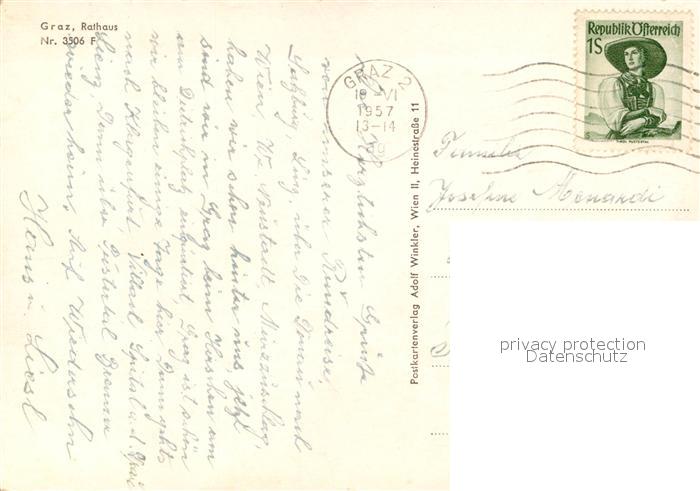 Graz, Rathaus
Nr. 3506 F
Herzlichsten Grüße
von unserer Rundreise.
Salzburg, Linz, über die Donau nach
Wien, Wr. Neustadt, Mürzzuschlag,
haben wir schon hinter uns, jetzt
sind wir in Graz beim
am Graz ist schön
wir bleiben einige Tage hier. Dann geht's
nach Klagenfurt, Villach, Spittal a. d. Drau
Lienz. Dann über Pustertal Brenner
wieder heim. Auf Wiedersehn
u. Liesl
GRAZ 2
19. VI
1957
13-14
Republik Österreich
1S
TIROL PUSTERTAL
Postkartenverlag Adolf Winkler, Wien II, Heinestraße 11
Familie
Josefine Menardi
privacy protection
Datenschutz